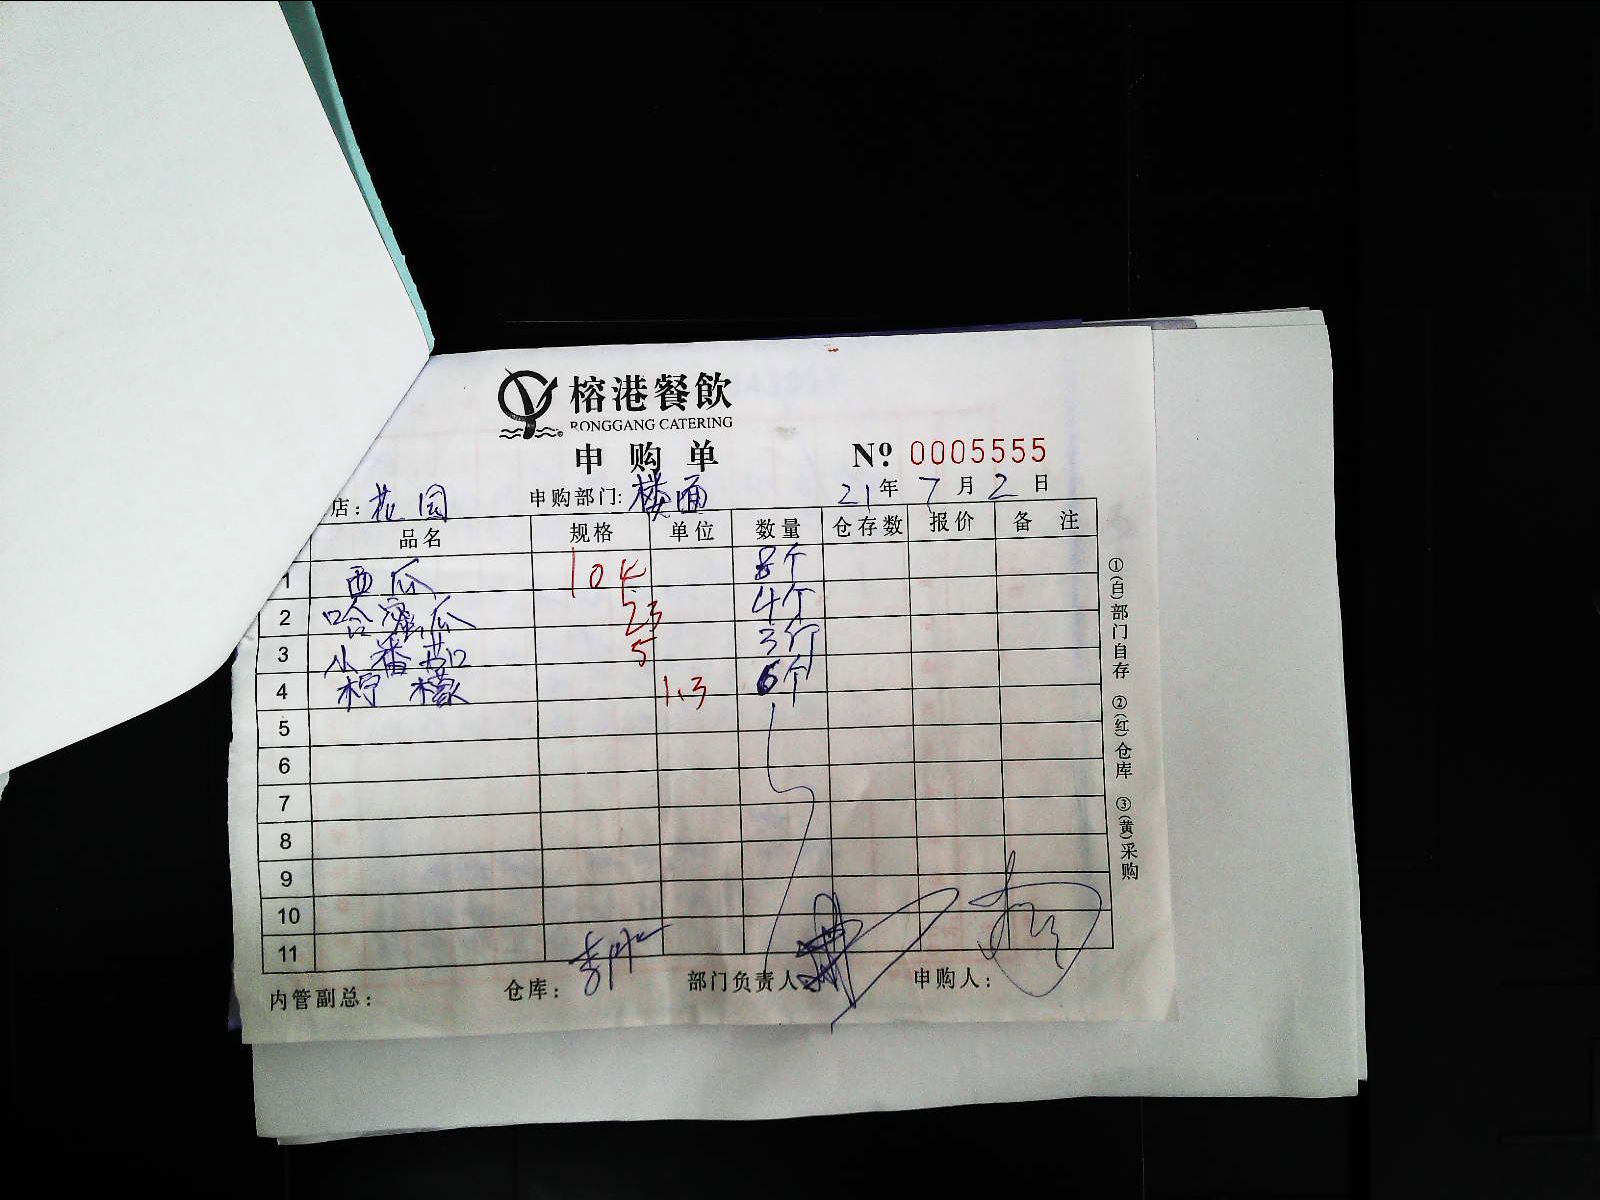 榕港餐飲
RONGGANG CATERING
申购单 Nº: 0005555
店: 花园 申购部门: 楼面 21年7月2日
品名 规格 单位 数量 仓存数 报价 备注
1 西瓜 104 8个
2 哈密瓜 23 4个
3 小番茄 5 3斤
4 柠檬 1.3 6个
5
6
7
8
9
10
11
内管副总: 仓库: 部门负责人 申购人:
①(白)部门自存 ②(红)仓库 ③(黄)采购